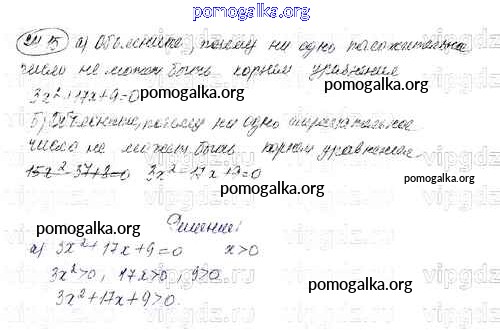 pomogalka.org
24.15 а) Объясните, почему ни одно положительное
число не может быть корнем уравнения
3x²+17x+9=0
pomogalka.org
pomogalka.org
б) Объясните, почему ни одно отрицательное
число не может быть корнем уравнения.
15x²-37+3=0 3x²-17x+9=0
pomogalka.org
pomogalka.org
Решение:
а) 3x²+17x+9=0 x>0
3x²>0, 17x>0, 9>0
3x²+17x+9>0.
pomogalka.org
pomogalka.org
vipgdz